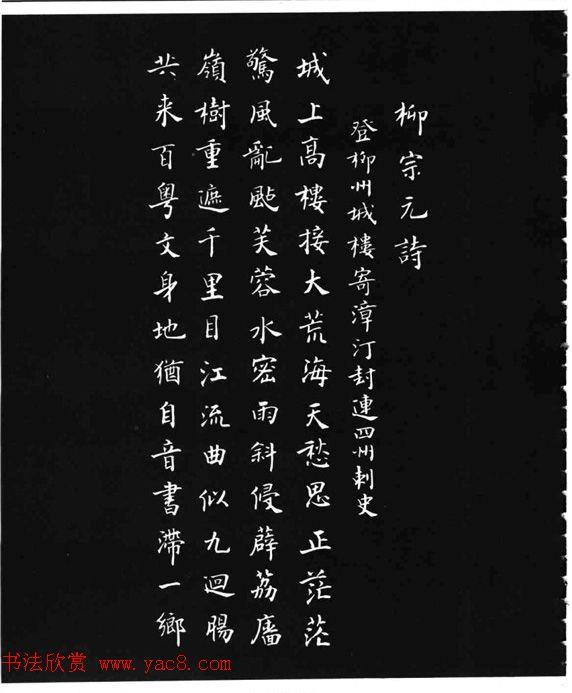 柳宗元詩
登柳州城樓寄漳汀封連四州刺史
城上高樓接大荒海天愁思正茫茫
驚風亂颭芙蓉水密雨斜侵薜荔牆
嶺樹重遮千里目江流曲似九迴腸
共来百粵文身地猶自音書滯一鄉
书法欣赏 www.yac8.com